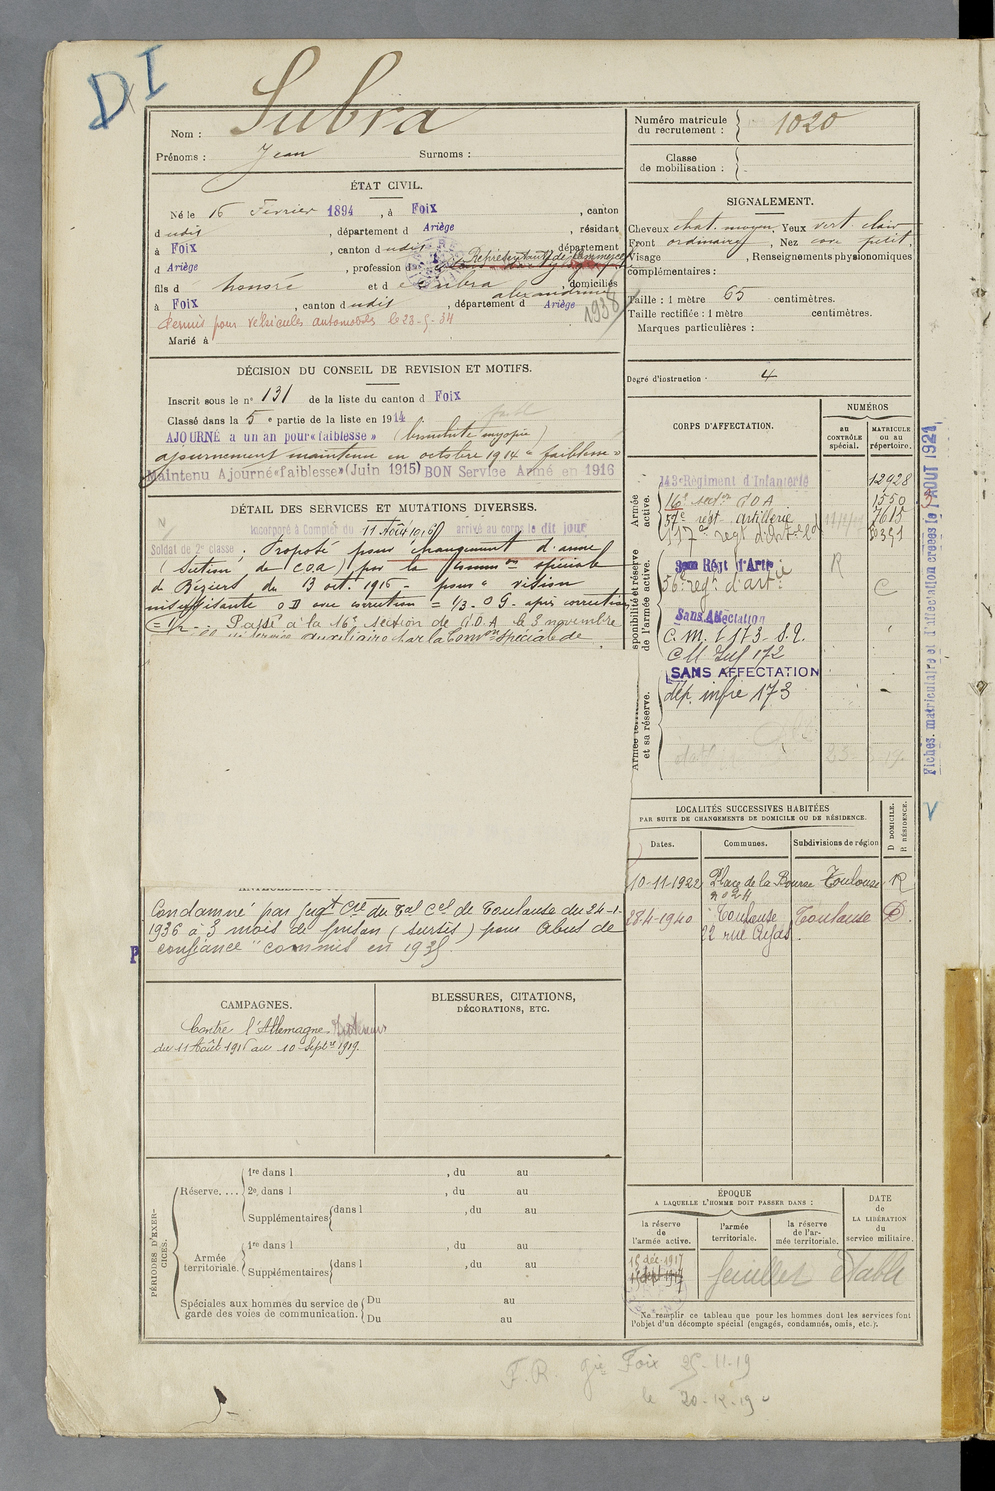 DI
Nom : Subra
Prénoms : Jean Surnoms :
ÉTAT CIVIL.
Né le 16 Février 1894, à Foix, canton
d udit, département d Ariège, résidant
à Foix, canton d udit, département
d Ariège, profession d Représentant de Commerce
fils d honoré et de Subra alexandrine, domiciliés
à Foix, canton d udit, département d Ariège
1938
Permis pour véhicules automobiles le 23-5-34
Marié à
DÉCISION DU CONSEIL DE REVISION ET MOTIFS.
Inscrit sous le n° 131 de la liste du canton d Foix
Classé dans la 5e partie de la liste en 1914.
AJOURNÉ a un an pour « faiblesse » (bronchite myopie)
ajournement maintenu en octobre 1914 « faiblesse »
Maintenu Ajourné « faiblesse » (Juin 1915) BON Service Armé en 1916
DÉTAIL DES SERVICES ET MUTATIONS DIVERSES.
Incorporé à Compter du 11 Août 1916 arrivé au corps le dit jour
Soldat de 2e classe. Proposé pour changement d'arme
(Section de C.O.A) par la Common spéciale
de Béziers du 13 oct. 1916 - pour « vision
insuffisante O D avec correction = 1/3. O G. après correction
= 1/2 - Passé à la 16e section de C.O.A le 3 novembre
service auxiliaire par la Common Spéciale de
Condamné par Jugt Cre du Tal Cel de Toulouse du 24-1-
1936 à 3 mois de prison (sursis) pour Abus de
confiance " commis en 1935.
P
CAMPAGNES.
Contre l'Allemagne
du 11 Août 1916 au 10 Septre 1919.
BLESSURES, CITATIONS,
DÉCORATIONS, ETC.
PÉRIODES D'EXERCICES.
Réserve....
1re dans l , du au
2e, dans l , du au
Supplémentaires dans l , du au
Armée territoriale.
1re dans l , du au
Supplémentaires dans l , du au
Spéciales aux hommes du service de garde des voies de communication.
Du au
Du au
Numéro matricule du recrutement : 1020
Classe de mobilisation :
SIGNALEMENT.
Cheveux chat. moyen, Yeux vert clair
Front ordinaire, Nez cave petit.
Visage , Renseignements physionomiques
complémentaires :
Taille : 1 mètre 65 centimètres.
Taille rectifiée : 1 mètre centimètres.
Marques particulières :
Degré d'instruction. 4
CORPS D'AFFECTATION.
NUMÉROS
au CONTRÔLE spécial.
MATRICULE ou au répertoire.
Armée active.
143e Régiment d'Infanterie 12928
16e secton C.O.A 1550
57e régt artillerie 7615
117e régt d'Art
sponibilité et réserve de l'armée active.
Régt d'Artie R
56e régt d'artie C
Sans Affectation
C. m. t 173 S.P.
C M Inf 172
SANS AFFECTATION
Armée territoriale et sa réserve.
dép. infie 173
Fiches matriculaire et d'affectation créées le 1 AOUT 1921
LOCALITÉS SUCCESSIVES HABITÉES
PAR SUITE DE CHANGEMENTS DE DOMICILE OU DE RÉSIDENCE.
Dates. Communes. Subdivisions de région
D DOMICILE. R RÉSIDENCE.
10-11-1922 Place de la Bourse Toulouse R
n° 24
28-4-1940 Toulouse Toulouse D
22 rue Cujas
ÉPOQUE
A LAQUELLE L'HOMME DOIT PASSER DANS :
la réserve de l'armée active.
l'armée territoriale.
la réserve de l'armée territoriale.
DATE DE LA LIBÉRATION du service militaire.
15 déc. 1917
feuillet établi
Ne remplir ce tableau que pour les hommes dont les services font
l'objet d'un décompte spécial (engagés, condamnés, omis, etc.).
F.R. gie Foix 25-11-19
le 20-12-19